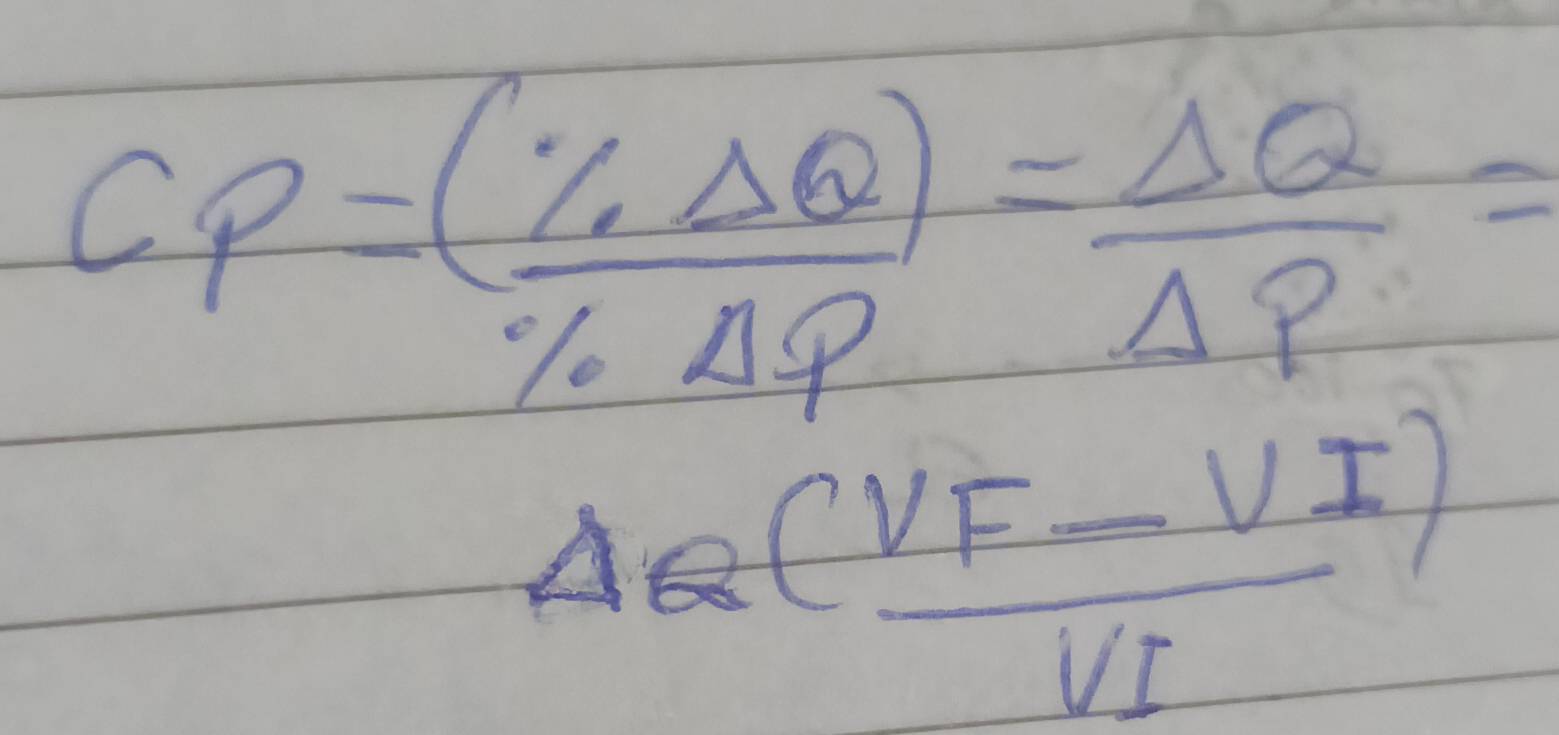 CP = (% ΔQ) / % ΔP = ΔQ / ΔP =
ΔQ (VF - VI) / VI